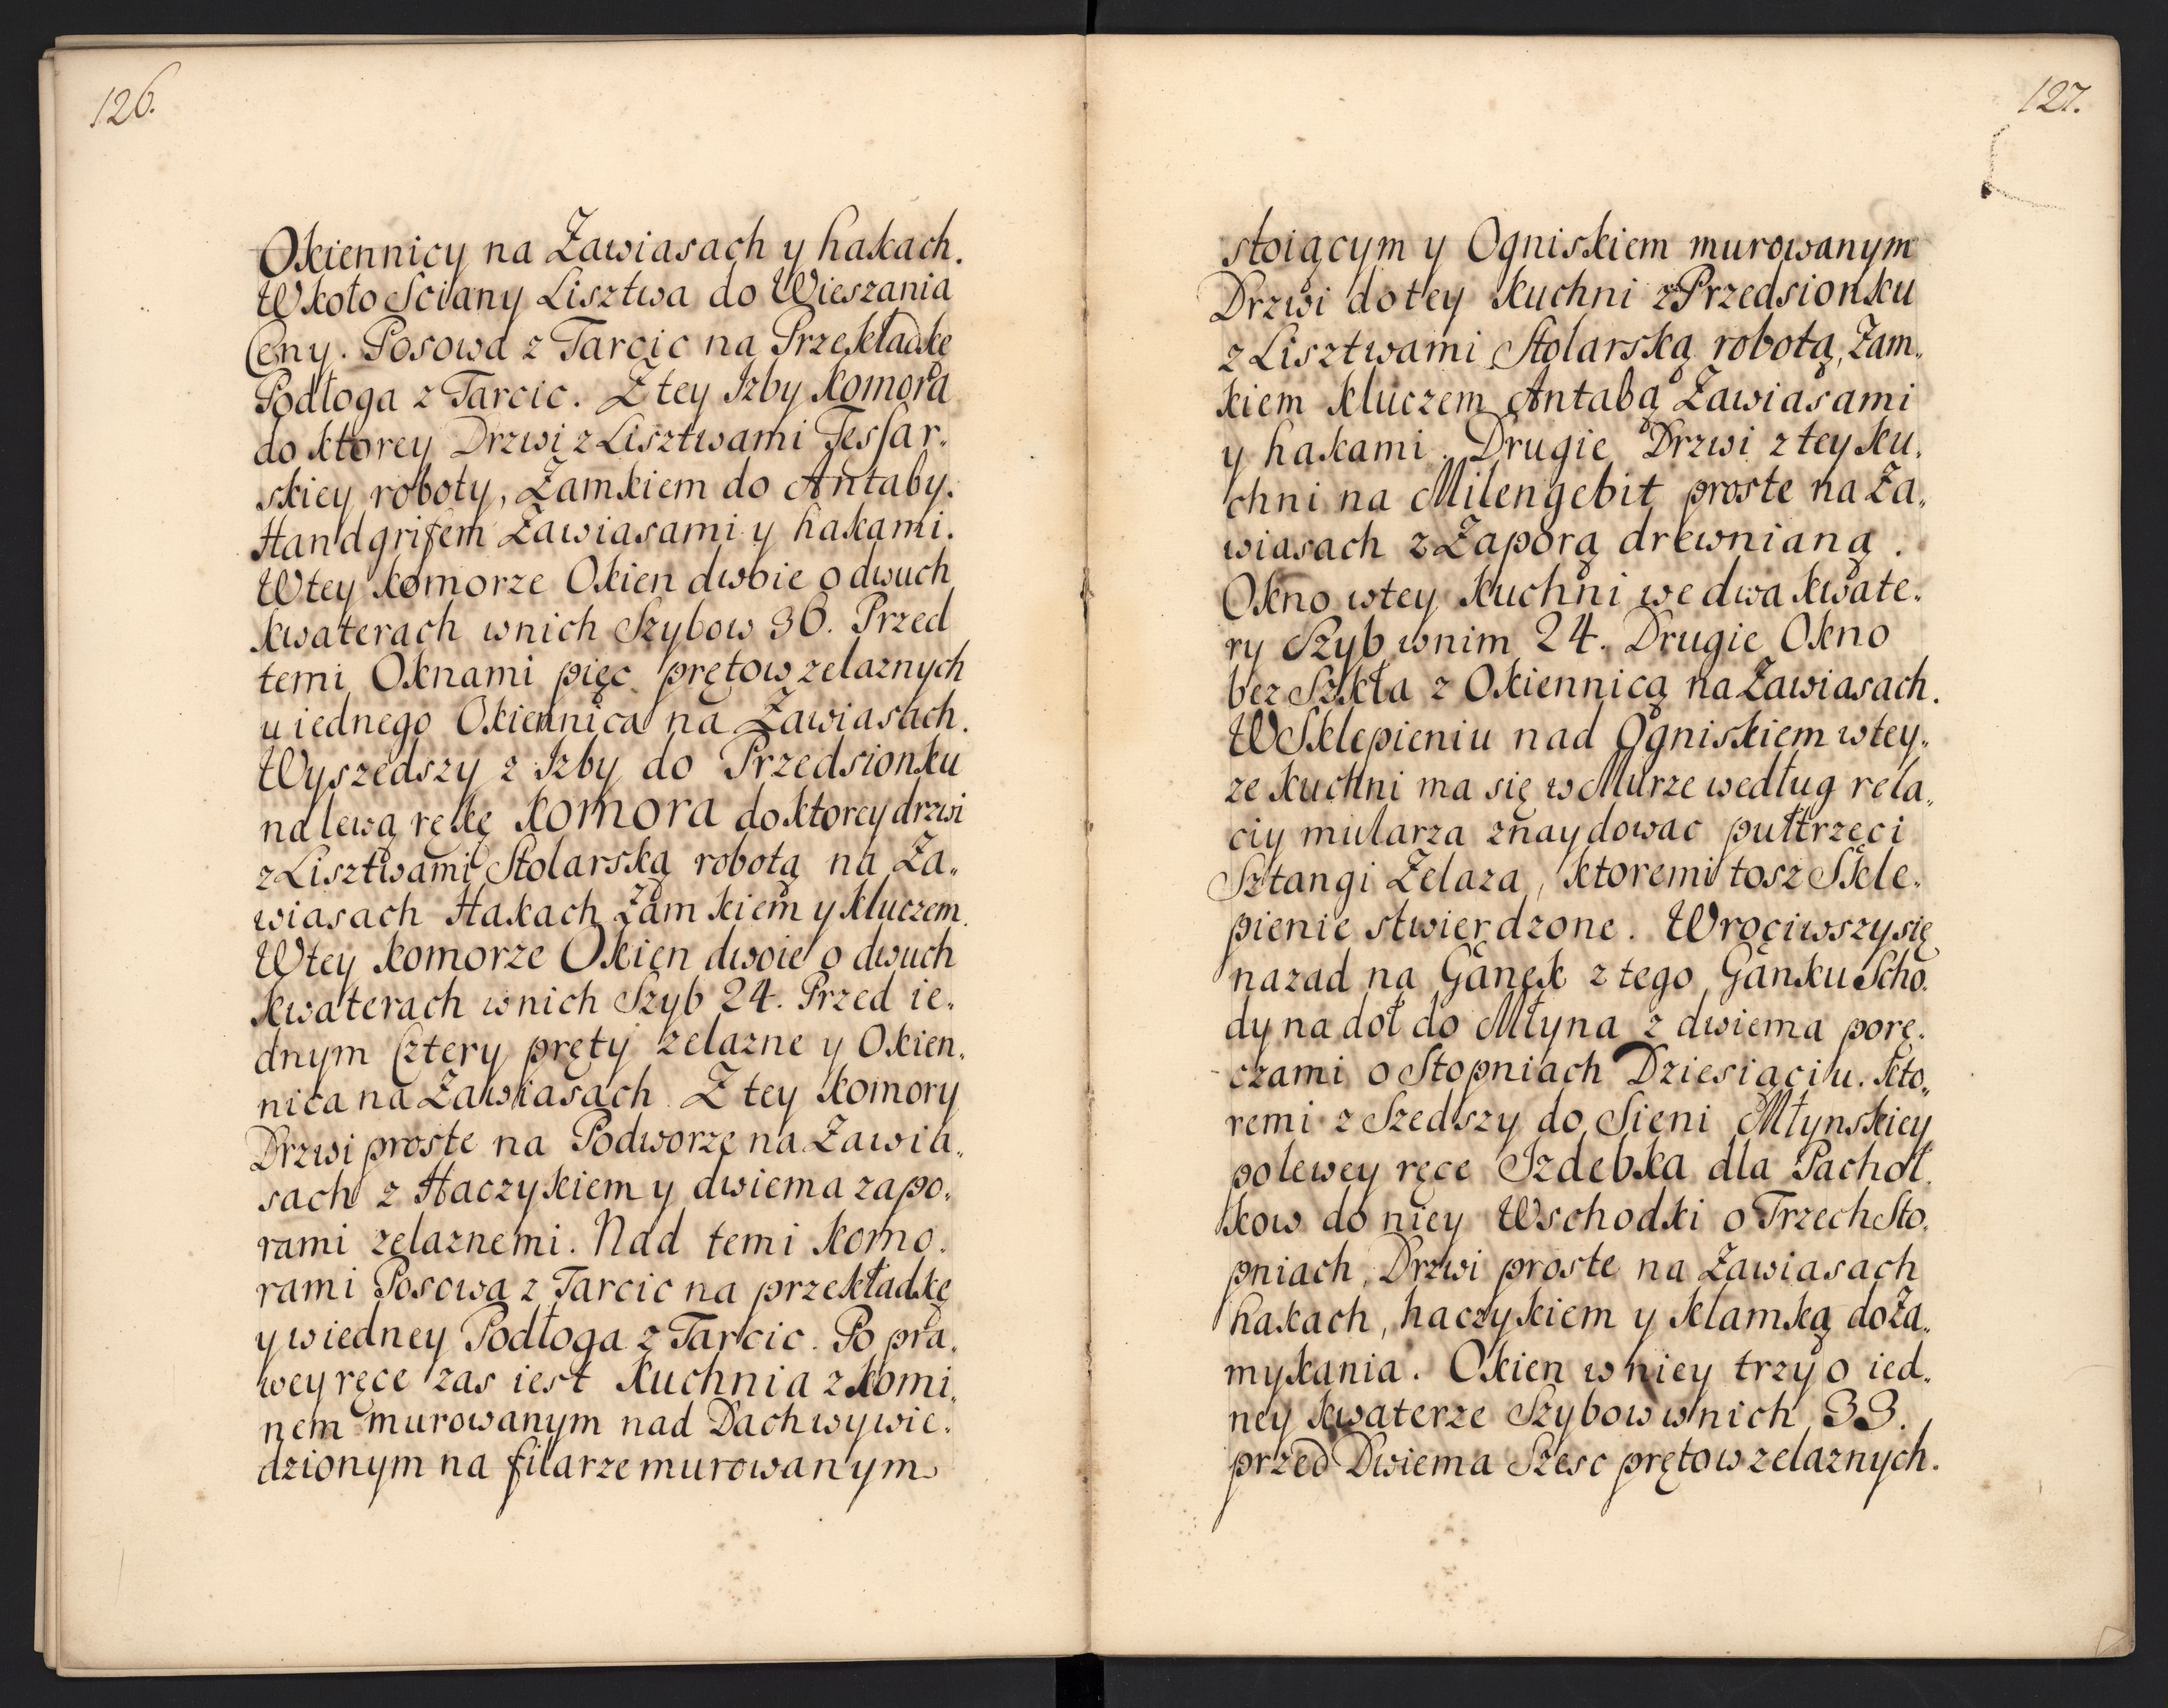 126.
Okiennicy na Zawiasach y hakach.
Wkoło Sciany Lisztwa do Wieszania
Ceny. Posowa z Tarcic na Przekładkę
Podłoga z Tarcic. Z tey Izby Komora
do ktorey Drzwi z Lisztwami Tessar„
skiey roboty, Zamkiem do Antaby.
Handgrifem Zawiasami y hakami.
Wtey komorze Okien dwoie o dwuch
kwaterach wnich Szybow 36. Przed
temi Oknami pięc prętow zelaznych
u iednego Okiennica na Zawiasach.
Wyszedszy z Izby do Przedsionku
na lewą rękę Komora do ktorey drzwi
z Lisztwami Stolarską robotą na Za„
wiasach Hakach Zamkiem y kluczem.
Wtey komorze Okien dwoie o dwuch
kwaterach wnich Szyb 24. Przed ie„
dnym Cztery pręty zelazne y Okien„
nica na Zawiasach. Z tey komory
Drzwi proste na Podworze na Zawia„
sach z Haczykiem y dwiema zapo„
rami zelaznemi. Nad temi komo„
rami Posowa z Tarcic na przekładkę
y wiedney Podłoga z Tarcic. Po pra„
wey ręce zas iest Kuchnia z komi„
nem murowanym nad Dach wywie„
dzionym na filarze murowanym
127.
stoiącym y Ogniskiem murowanym
Drzwi do tey Kuchni z Przedsionku
z Lisztwami Stolarską robotą, Zam„
kiem kluczem Antabą Zawiasami
y hakami. Drugie Drzwi z tey ku„
chni na Milengebit proste na Za„
wiasach z Zaporą drewnianą.
Okno wtey Kuchni we dwa kwate„
ry Szyb wnim 24. Drugie Okno
bez Szkła z Okiennicą na Zawiasach.
W Sklepieniu nad Ogniskiem wtey„
ze kuchni ma się w Murze według rela„
ciy mularza znaydowac pułtrzeci
Sztangi Zelaza, ktoremi tosz Skle„
pienie stwierdzone. Wrociwszy się
nazad na Ganek z tego Ganku Scho„
dy na doł do Młyna z dwiema porę„
czami o Stopniach Dziesiąciu. Kto„
remi z Szedszy do Sieni Młynskiey
po lewey ręce Izdebka dla Pachoł„
kow do niey Wschodki o Trzech Sto„
pniach, Drzwi proste na Zawiasach
hakach, haczykiem y klamką do Za„
mykania. Okien wniey trzy o ied„
ney kwaterze Szybow wnich 33.
przed Dwiema Szesc prętow zelaznych.